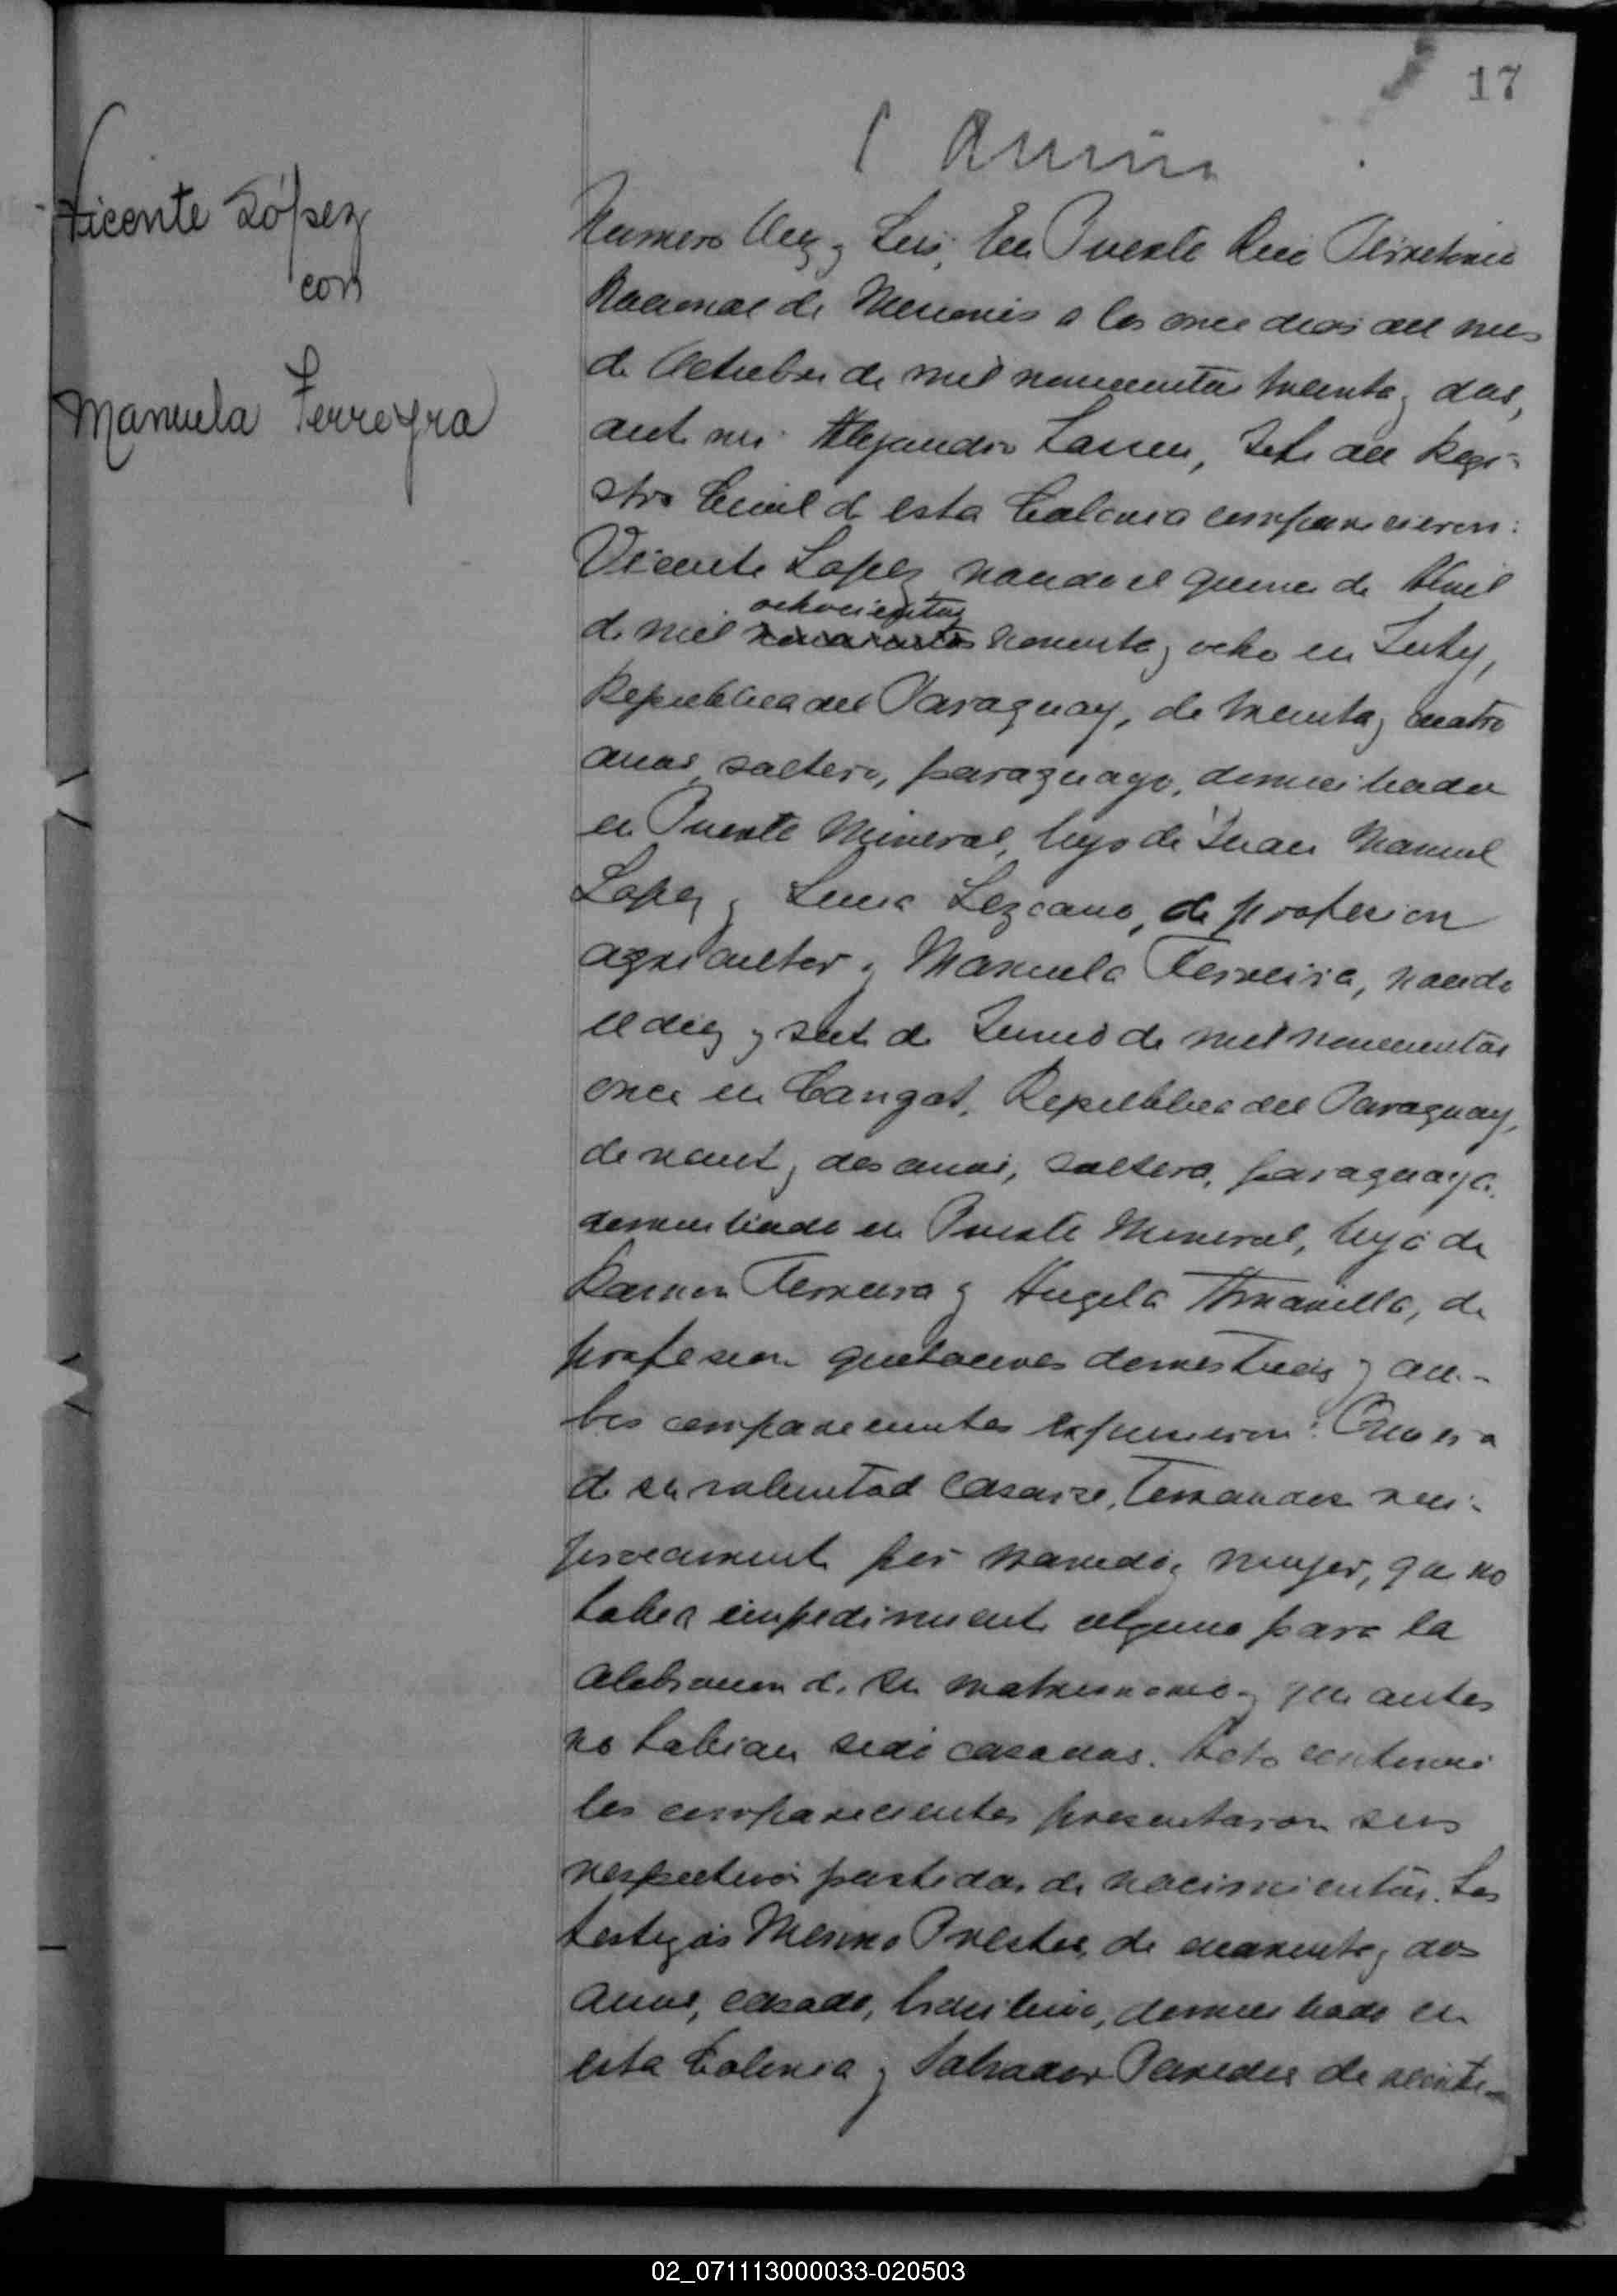 17
Vicente López
con
Manuela Ferreyra
Numero diez y seis, En Puerto Rico Territorio
Nacional de Misiones a los once dias del mes
de Octubre de mil novecientos treinta y dos,
ante mi Alejandro Lassen, Jefe del Regi-
stro Civil d esta Colonia comparecieron:
Vicente Lopez nacido el quince de Abril
de mil ochocientos noventa y ocho en Juty,
Republica del Paraguay, de treinta y cuatro
anos, soltero, paraguayo, domiciliado
en Puerto Mineral, hijo de Juan Manuel
Lopez y Lezcano, de profesion
agricultor y Manuela Ferreira, nacida
el diez y siete de Junio de mil novecientos
once en Cangot, Republica del Paraguay,
de veinte y dos anos, soltera, paraguaya,
domiciliada en Puerto Mineral, hija de
Ramon Ferreira y Angela de
profesion quehaceres domesticos y am-
bos comparecientes expusieron: Que era
de su voluntad casarse, tomandose reci-
procamente por marido y mujer, que no
habia impedimento alguno para la
celebracion de su matrimonio y que antes
no habian sido casados. Acto continuo
los comparecientes presentaron sus
respectivos partidas de nacimientos. Los
testigos Prestes, de cuarenta y dos
anos, casado, brasilero, domiciliado en
esta Colonia y Salvador Paredes de veinte-
02_071113000033-020503